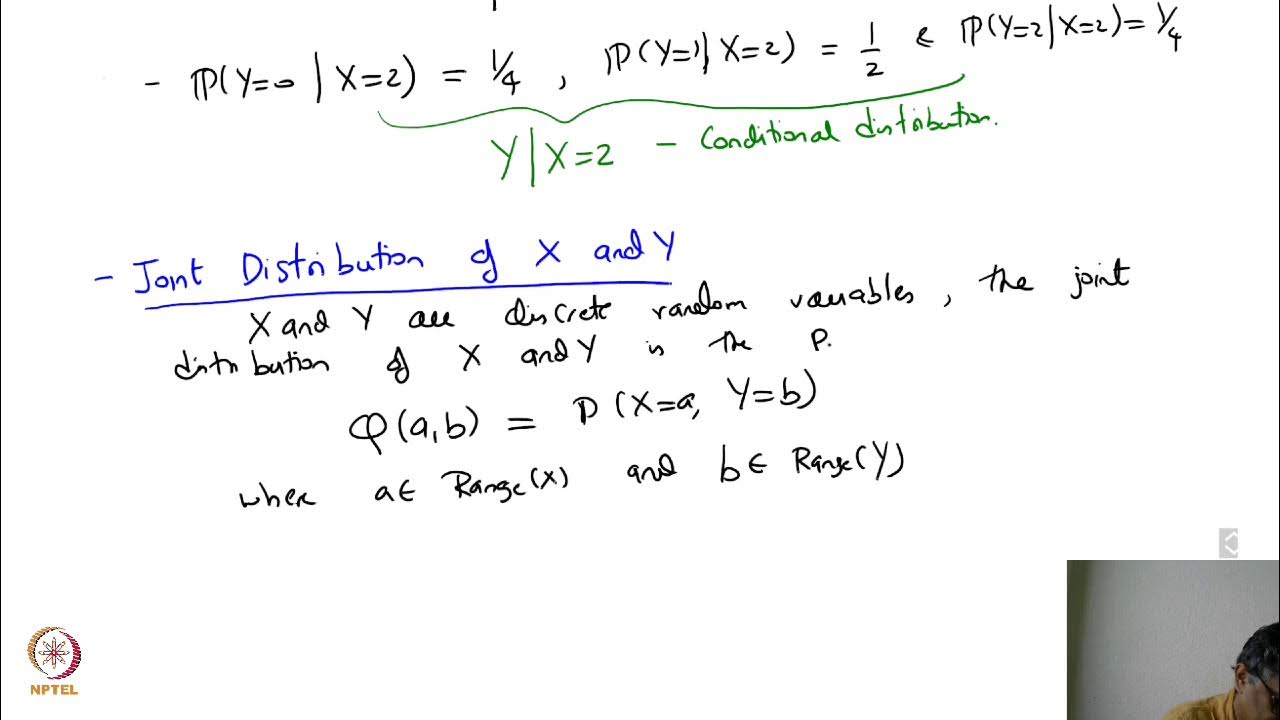 - ℙ(Y=0 | X=2) = 1/4 , ℙ(Y=1 | X=2) = 1/2 & ℙ(Y=2 | X=2) = 1/4
Y | X=2 - Conditional distribution.
- Joint Distribution of X and Y
X and Y are discrete random variables, the joint
distribution of X and Y is the P.
φ(a,b) = P(X=a, Y=b)
where a∈ Range(X) and b∈ Range(Y)
NPTEL